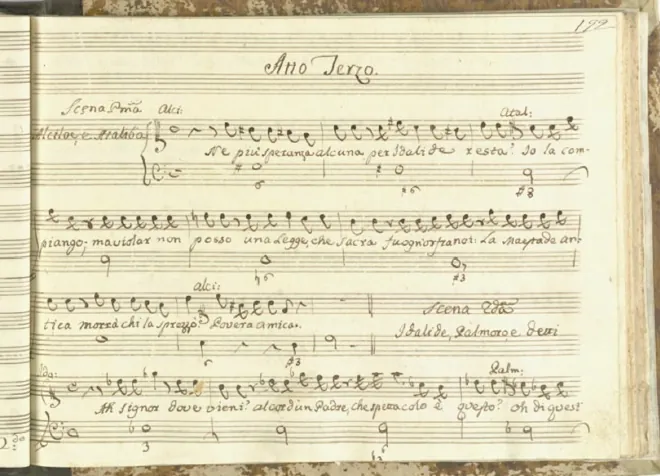 199
Atto Terzo.
Scena Pma Alci:
Alciloe, e Ataliba
Atal:
Ne piu speranza alcuna per Idalide resta? Io la com-
piango; ma violar non posso una Legge, che sacra fu ognor fra noi: La Maestade an-
alci:
tica morrà chi la sprezzò? Povera amica.
Scena 2da
Idalide, Palmoro, e detti
Ida:
Palm:
Ah Signor dove vieni? al cor d'un Padre, che spetacolo è questo? oh di quest